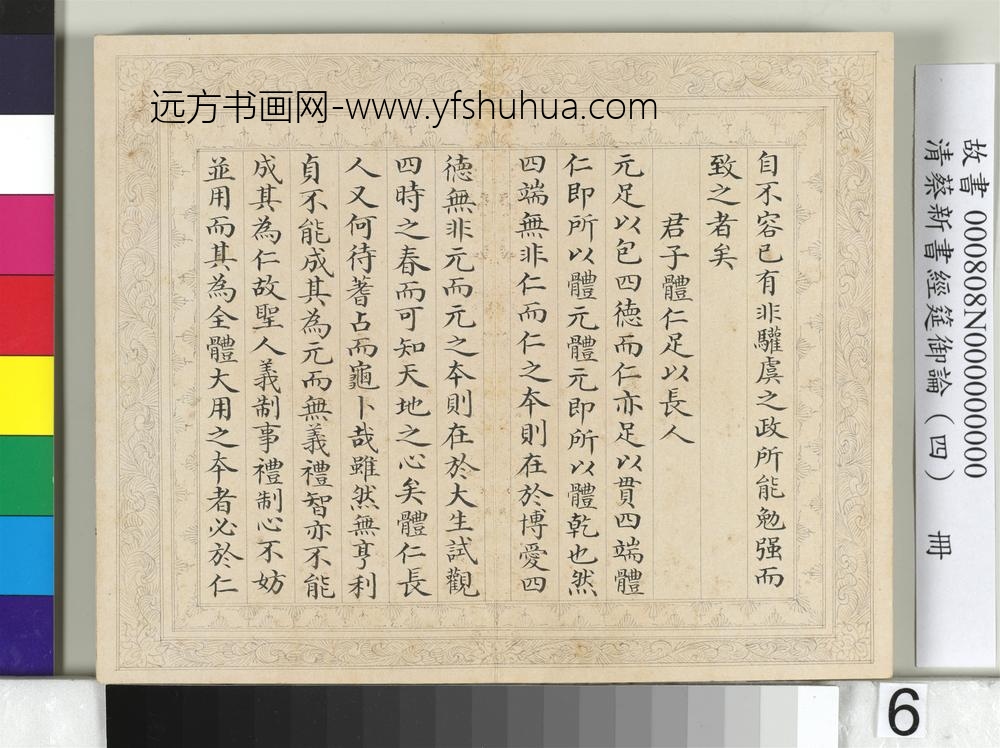 远方书画网-www.yfshuhua.com
自不容已有非驩虞之政所能勉强而
致之者矣
君子體仁足以長人
元足以包四德而仁亦足以貫四端體
仁即所以體元體元即所以體乾也然
四端無非仁而仁之本則在於博愛四
德無非元而元之本則在於大生試觀
四時之春而可知天地之心矣體仁長
人又何待蓍占而龜卜哉雖然無亨利
貞不能成其為元而無義禮智亦不能
成其為仁故聖人義制事禮制心不妨
並用而其為全體大用之本者必於仁
故書 000808N000000000
清蔡新書經筵御論（四） 冊
6